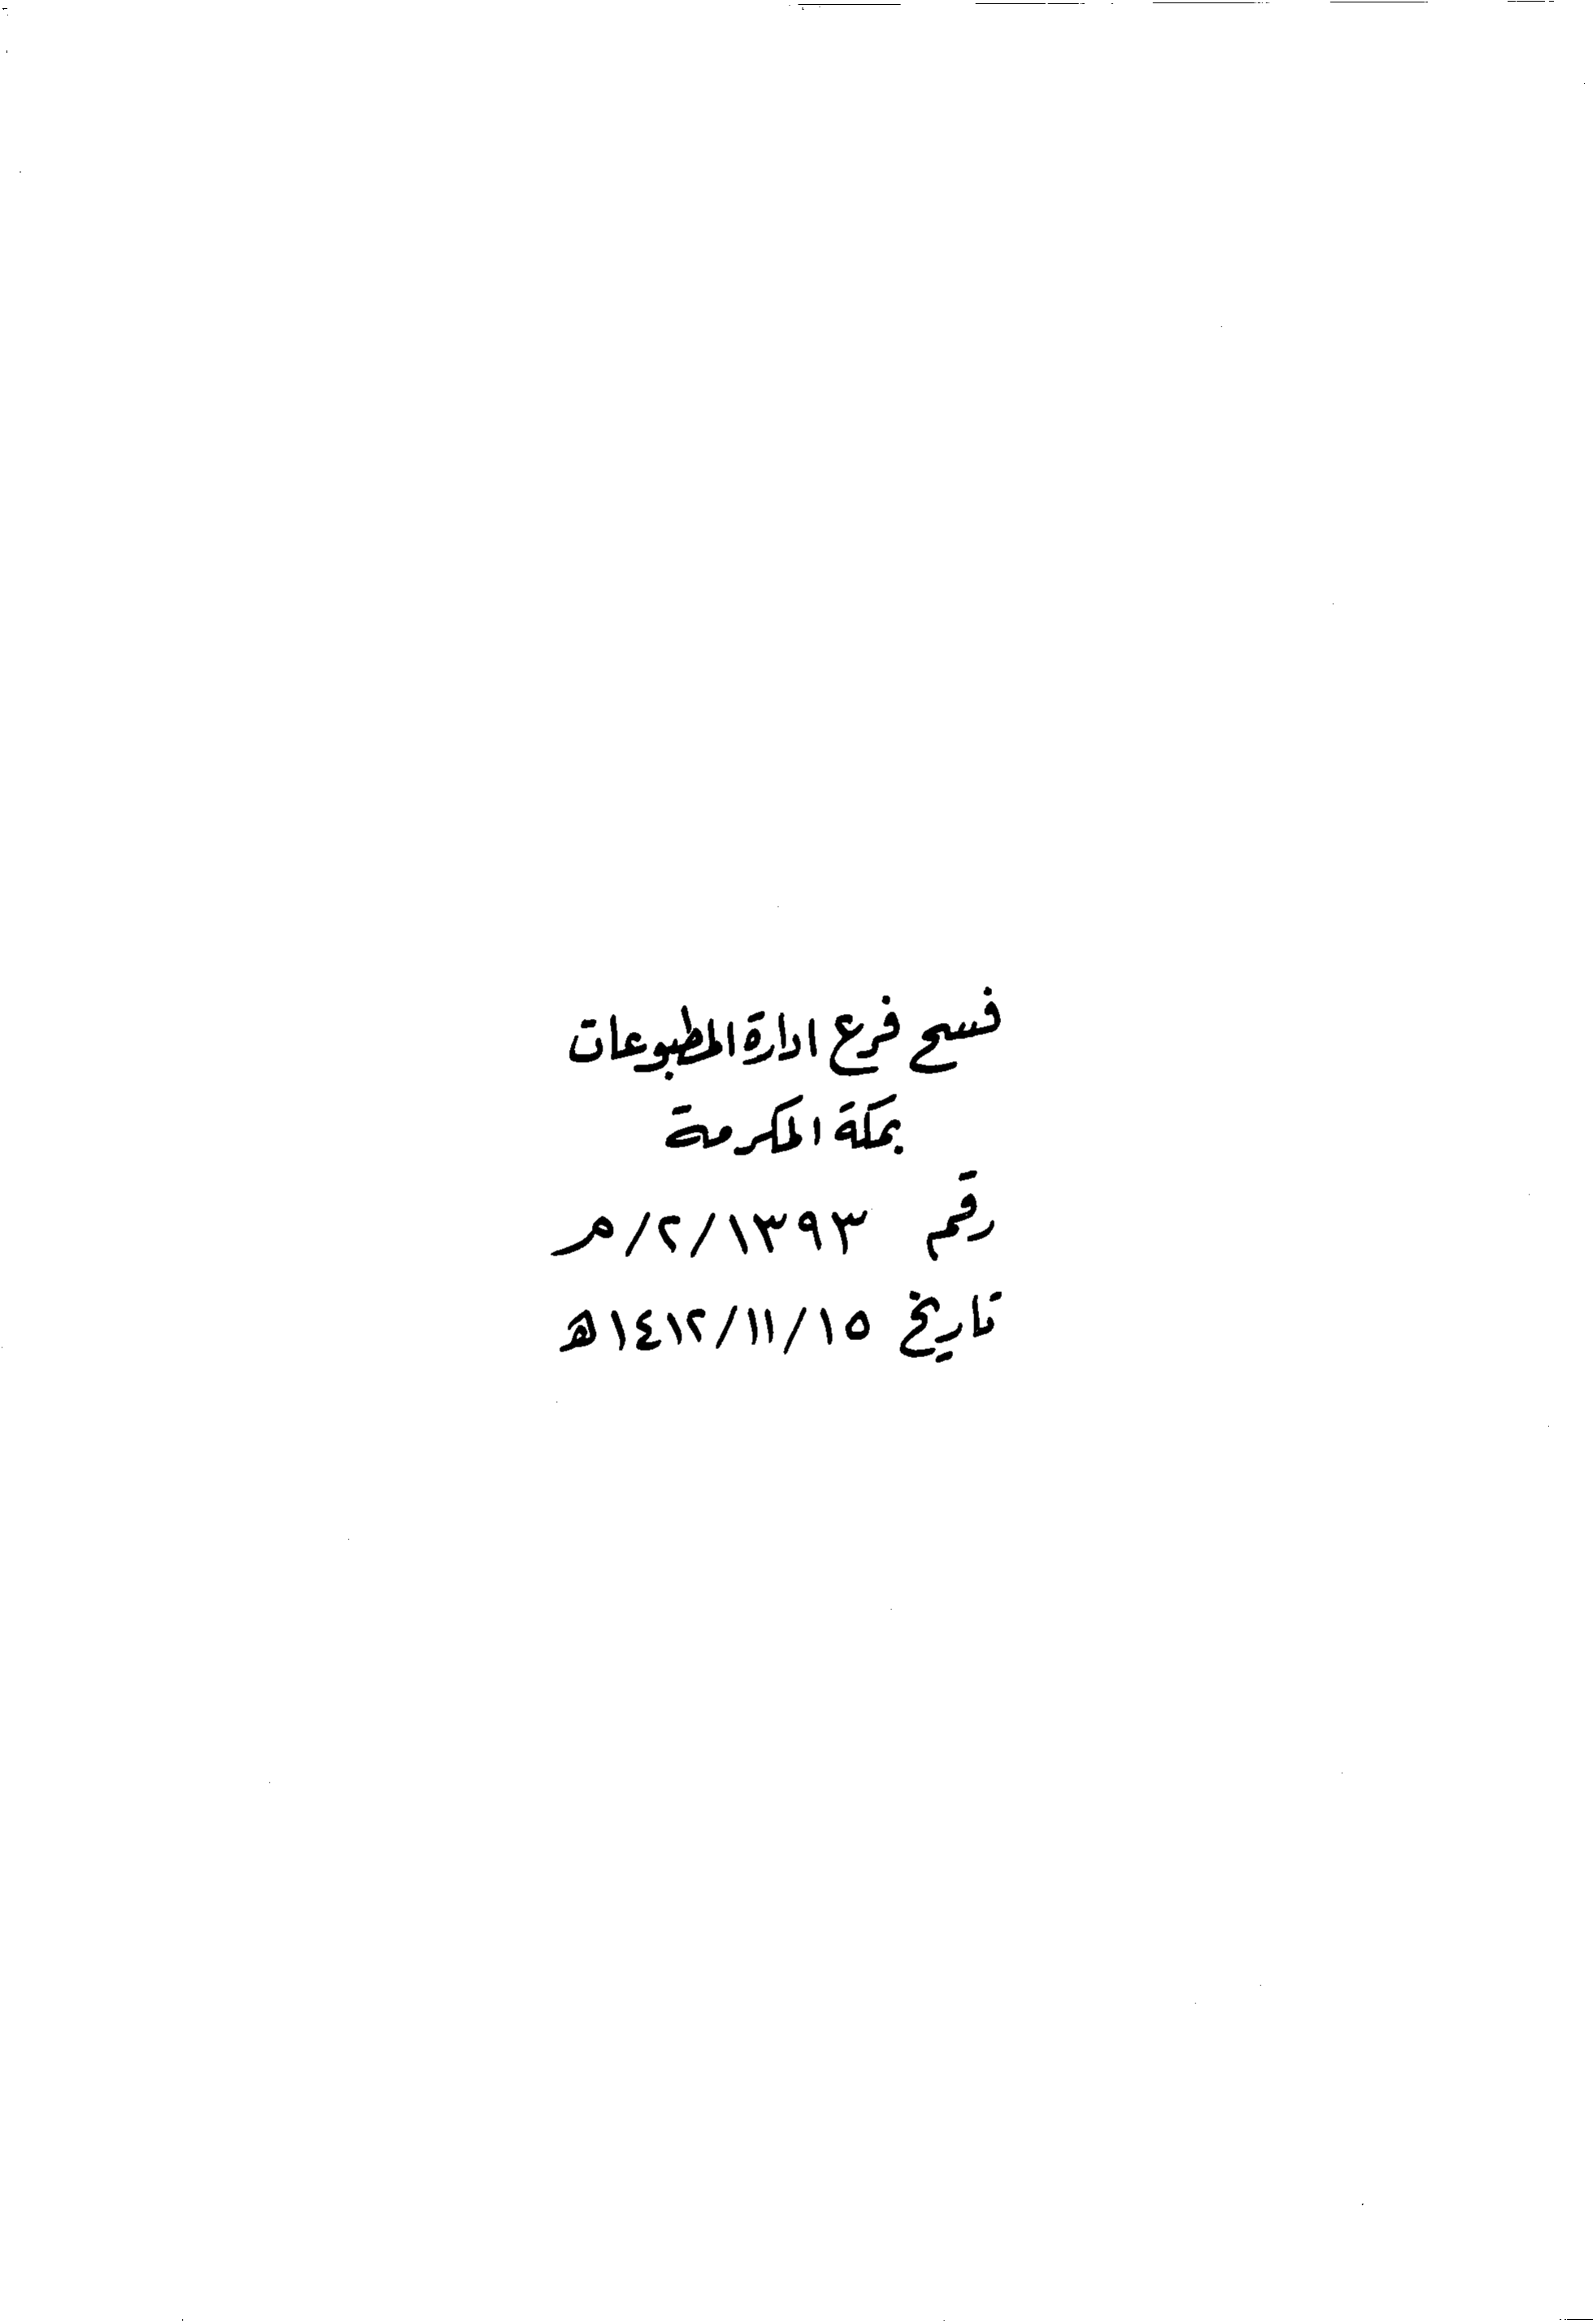 فسح فرع ادارة المطبوعات
بمكة المكرمة
رقم ١٣٩٣/٢/م
تاريخ ١٤١٢/١١/١٥هـ